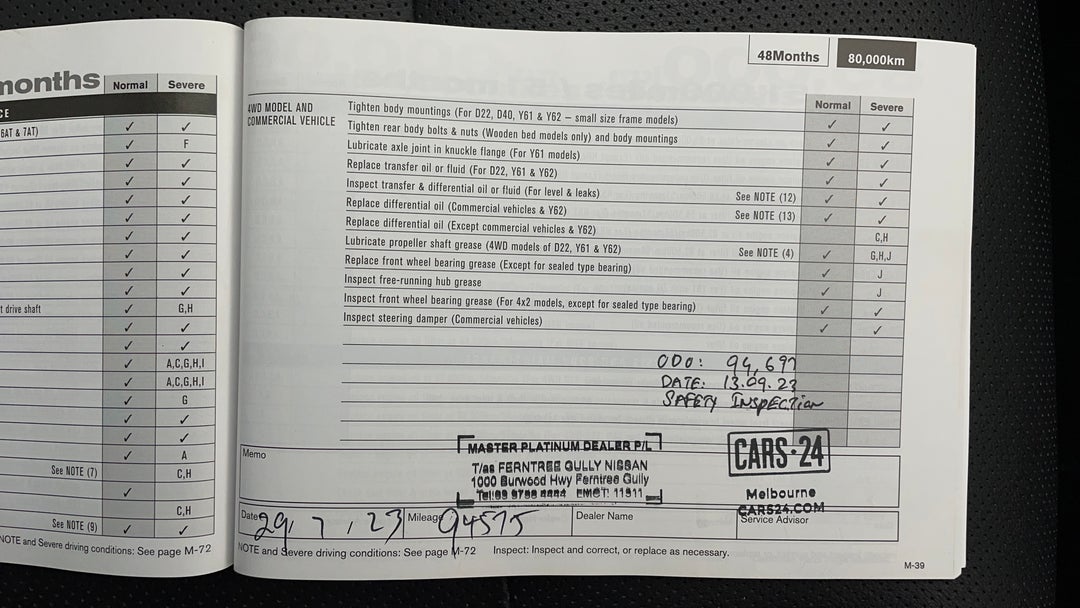 months Normal Severe
CE
6AT & 7AT) ✓ ✓
✓ F
✓ ✓
✓ ✓
✓ ✓
✓ ✓
✓ ✓
✓ ✓
✓ ✓
✓ ✓
t drive shaft ✓ G,H
✓ ✓
✓ ✓
✓ A,C,G,H,I
✓ A,C,G,H,I
✓ G
✓ ✓
✓ ✓
✓ A
See NOTE (7) C,H
✓
C,H
See NOTE (9) ✓ ✓
NOTE and Severe driving conditions: See page M-72
48Months 80,000km
Normal Severe
4WD MODEL AND
COMMERCIAL VEHICLE
Tighten body mountings (For D22, D40, Y61 & Y62 – small size frame models) ✓ ✓
Tighten rear body bolts & nuts (Wooden bed models only) and body mountings ✓ ✓
Lubricate axle joint in knuckle flange (For Y61 models) ✓ ✓
Replace transfer oil or fluid (For D22, Y61 & Y62) ✓ ✓
Inspect transfer & differential oil or fluid (For level & leaks) See NOTE (12) ✓ ✓
Replace differential oil (Commercial vehicles & Y62) See NOTE (13) ✓ ✓
Replace differential oil (Except commercial vehicles & Y62) C,H
Lubricate propeller shaft grease (4WD models of D22, Y61 & Y62) See NOTE (4) ✓ G,H,J
Replace front wheel bearing grease (Except for sealed type bearing) ✓ J
Inspect free-running hub grease ✓ J
Inspect front wheel bearing grease (For 4x2 models, except for sealed type bearing) ✓ ✓
Inspect steering damper (Commercial vehicles) ✓ ✓
ODO: 94,697
DATE: 13.09.23
SAFETY INSPECTION
Memo
MASTER PLATINUM DEALER P/L
T/as FERNTREE GULLY NISSAN
1000 Burwood Hwy Ferntree Gully
CARS·24
Melbourne
CARS24.COM
Date 29, 7, 23 Mileage 94575 Dealer Name Service Advisor
NOTE and Severe driving conditions: See page M-72 Inspect: Inspect and correct, or replace as necessary.
M-39